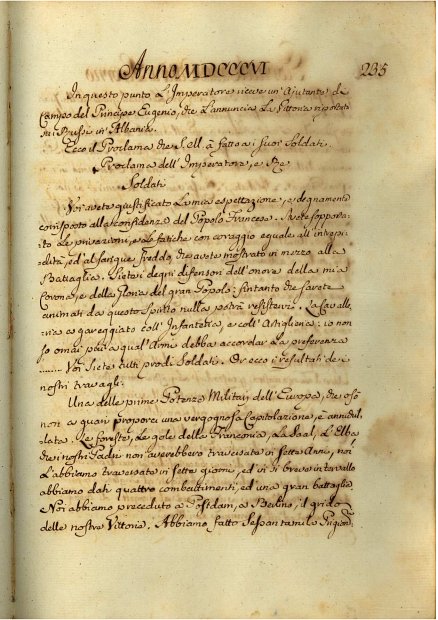 Anno MDCCCVI 235
In questo punto L'Imperatore riceve un' Ajutante di
Campo del Principe Eugenio, che L'annuncia La Vittoria riportata
sui Russi in Albania.
Ecco il Proclama che S. M. à fatto a i suoi Soldati.
Proclama dell' Imperatore, e Re
Soldati
Voi avete giustificato La mia espettazione, e degnamente
corrisposto alla confidenza del Popolo Francese. Avete sopporta-
to Le privazioni, e Le fatiche con coraggio eguale all' intrepi-
dità, ed al sangue freddo, che avete mostrato in mezzo alla
Battaglia. Siete i degni difensori dell' onore della mia
Corona, e della gloria del gran Popolo: fintanto che sarete
animati da questo Spirito nulla potrà resistervi. La Caval
leria à gareggiato coll' Infanteria, e coll' Artiglieria: io non
so omai più a qual' Arme debba accordar La preferenza
........ Voi Siete tutti prodi Soldati. Or ecco i resultati de i
nostri travagli.
Una delle prime Potenze Militari dell' Europa, che osò
non à guari proporci una vergognosa Capitolazione, è annichi-
lata. Le foreste, Le gole della Franconia, La Saal, L' Elba
che i nostri Padri non averebbero traversate in sette Anni, noi
L'abbiamo traversate in sette giorni, ed in sì breve intervallo
abbiamo dati quattro combattimenti, ed una gran battaglia.
Noi abbiamo preceduto a Postdam, a Berlino, il grido
delle nostre Vittorie. Abbiamo fatto Sessanta mila Prigion: